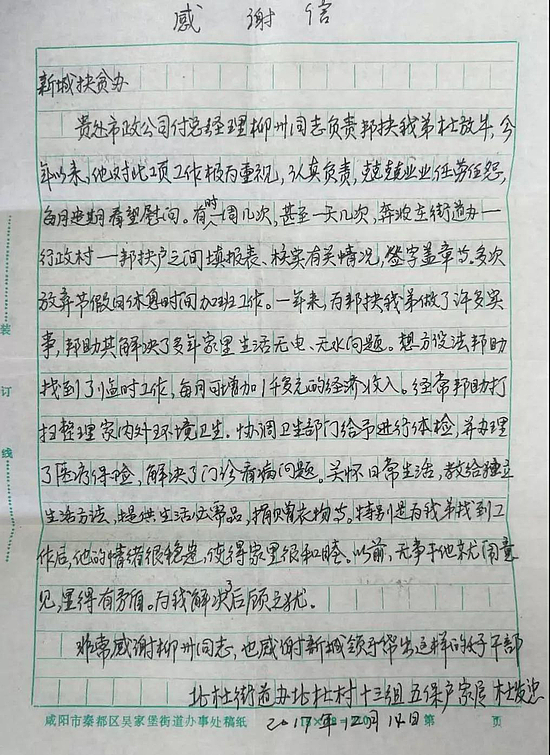 感谢信
新城扶贫办
贵处市政公司付总经理柳州同志负责邦扶我弟杜放牛,今
年以来,他对此项工作极为重视,认真负责,兢兢业业任劳任怨,
每月定期看望慰问。有时一周几次,甚至一天几次,奔波在街道办一
行政村一邦扶户之间填报表、核实有关情况,签字盖章等。多次
放弃节假日休息时间加班工作。一年来,为邦扶我弟做了许多实
事,帮助其解决了多年家里生活无电、无水问题。想方设法帮助
找到了临时工作,每月可增加1千多元的经济收入。经常帮助打
扫整理家内外环境卫生。协调卫生部门给予进行体检,并办理
了医疗保险,解决了门诊看病问题。关怀日常生活,教给独立
生活方法,提供生活必需品,捐赠衣物等。特别是为我弟找到工
作后,他的情绪很稳定,使得家里很和睦。以前,无事干他就闹意
见,显得有矛盾。为我解决了后顾之忧。
非常感谢柳州同志,也感谢新城领导带出这样的好干部
北杜街道办北杜村十三组五保户家属
2017年12月14日 第 页
咸阳市秦都区吴家堡街道办事处稿纸
装
订
线